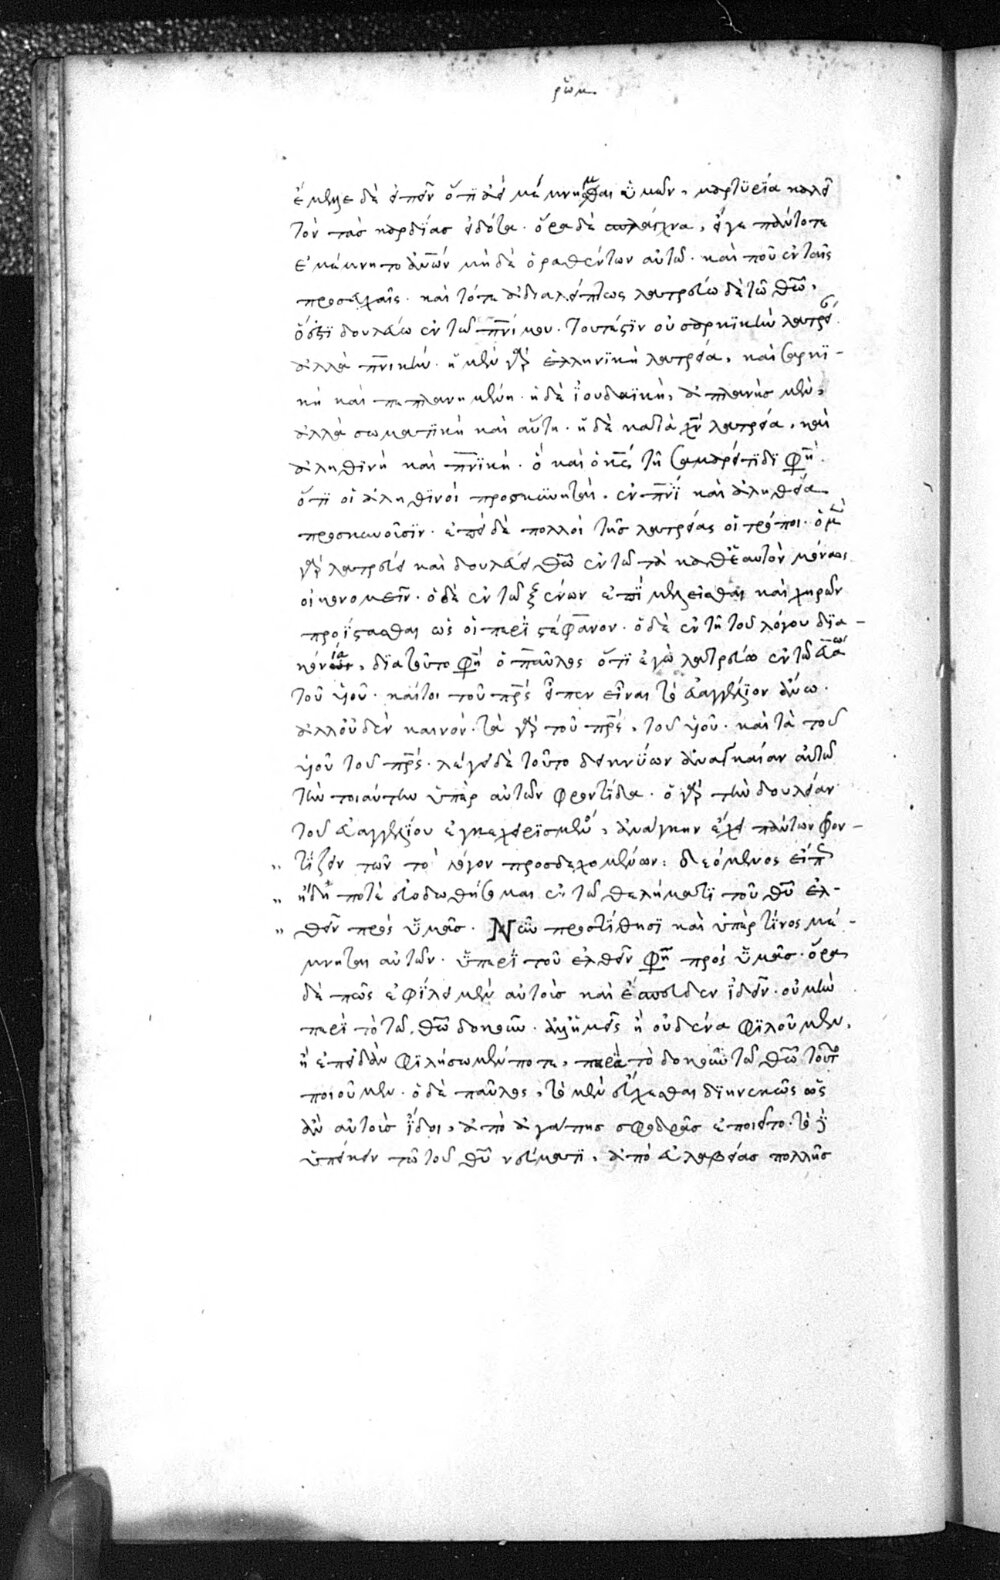 ρωμ.
ἔμελλε δὲ εἰπεῖν ὅτι ἀεὶ μέμνημαι ὑμῶν, μαρτυρία καλεῖ
τὸν τὰς καρδίας εἰδότα. ὅρα δὲ σπλάγχνα, εἴγε πάντοτε
ἐμέμνητο αὐτῶν μηδὲ ὁραθέντων αὐτῷ. καὶ ποῦ ἐν ταῖς
προσευχαῖς. καὶ τότε ἀδιαλείπτως λατρεύω δὲ τῷ θῶ,
ὅ ἐστι δουλεύω ἐν τῷ πνί μου. τουτέστιν οὐ σαρκικὴν
ἀλλὰ πνικήν. ἡ μὲν γὰρ ἑλληνικὴ λατρεία, καὶ σαρκι-
κὴ καὶ πεπλανημένη. ἡ δὲ ἰουδαϊκὴ, ἀπλανὴς μὲν,
ἀλλὰ σωματικὴ καὶ αὕτη. ἡ δὲ κατὰ χν λατρεία, καὶ
ἀληθινὴ καὶ πνικὴ. ὃ καὶ ὁ κς τῇ σαμαρείτιδι φη
ὅτι οἱ ἀληθινοὶ προσκυνηταὶ. ἐν πνί καὶ ἀληθεία
προσκυνοῦσιν. ἐπεὶ δὲ πολλοὶ τῆς λατρείας οἱ τρόποι. ὁ μὲν
γὰρ λατρεύει καὶ δουλεύει θῶ ἐν τῷ τὰ καθ' ἑαυτὸν μόνως
οἰκονομεῖν. ὁ δὲ ἐν τῷ ξένων ἐπιμελεῖσθαι καὶ χηρῶν
προΐστασθαι ὡς οἱ περὶ στέφανον. ὁ δὲ ἐν τῇ τοῦ λόγου δια-
κονία, διατοῦτο φη ὁ παῦλος ὅτι ἐγὼ λατρεύω ἐν τῷ εὐαγγελίω
τοῦ υἱοῦ. καίτοι τοῦ πρς εἶπεν εἶναι τὸ εὐαγγέλιον ἄνω.
ἀλλ' οὐδὲν καινόν. τὰ γὰρ τοῦ πρς, τοῦ υἱοῦ. καὶ τὰ τοῦ
υἱοῦ τοῦ πρς. λέγει δὲ τοῦτο δεικνύων ἀναγκαίαν αὐτῷ
τὴν τοιαύτην ὑπὲρ αὐτῶν φροντίδα. ὁ γὰρ τὴν δουλείαν
τοῦ εὐαγγελίου ἐγκεχειρισμένος, ἀνάγκην ἔχει πάντων φρον-
τίζειν τῶν τὸν λόγον προσδεχομένων: δεόμενος εἴπως
ἤδη ποτὲ εὐοδωθήσομαι ἐν τῷ θελήματι τοῦ θυ ἐλ-
θεῖν πρὸς ὑμᾶς. Νῦν προστίθησι καὶ ὑπὲρ τίνος μέ-
μνηται αὐτῶν. ὑπὲρ τοῦ ἐλθεῖν φη πρὸς ὑμᾶς. ὅρα
δὲ πῶς ἐφίλει μὲν αὐτοὺς καὶ ἔσπευδεν ἰδεῖν. οὐ μὴν
παρὰ τὸ τῷ θῶ δοκοῦν. ἀλλ' ἡμεῖς ἢ οὐδένα φιλοῦμεν,
ἢ ἐπειδὰν φιλήσωμέν ποτε, παρὰ τὸ δοκοῦν τῷ θῶ τοῦτο
ποιοῦμεν. ὁ δὲ παῦλος, τὸ μὲν εὔχεσθαι διηνεκῶς ὡς
ἂν αὐτοὺς ἴδοι, ἀπὸ ἀγάπης σφοδρᾶς ἐποιεῖτο. τὸ δὲ
ὑπείκειν τῷ τοῦ θυ νεύματι, ἀπὸ εὐλαβείας πολλῆς